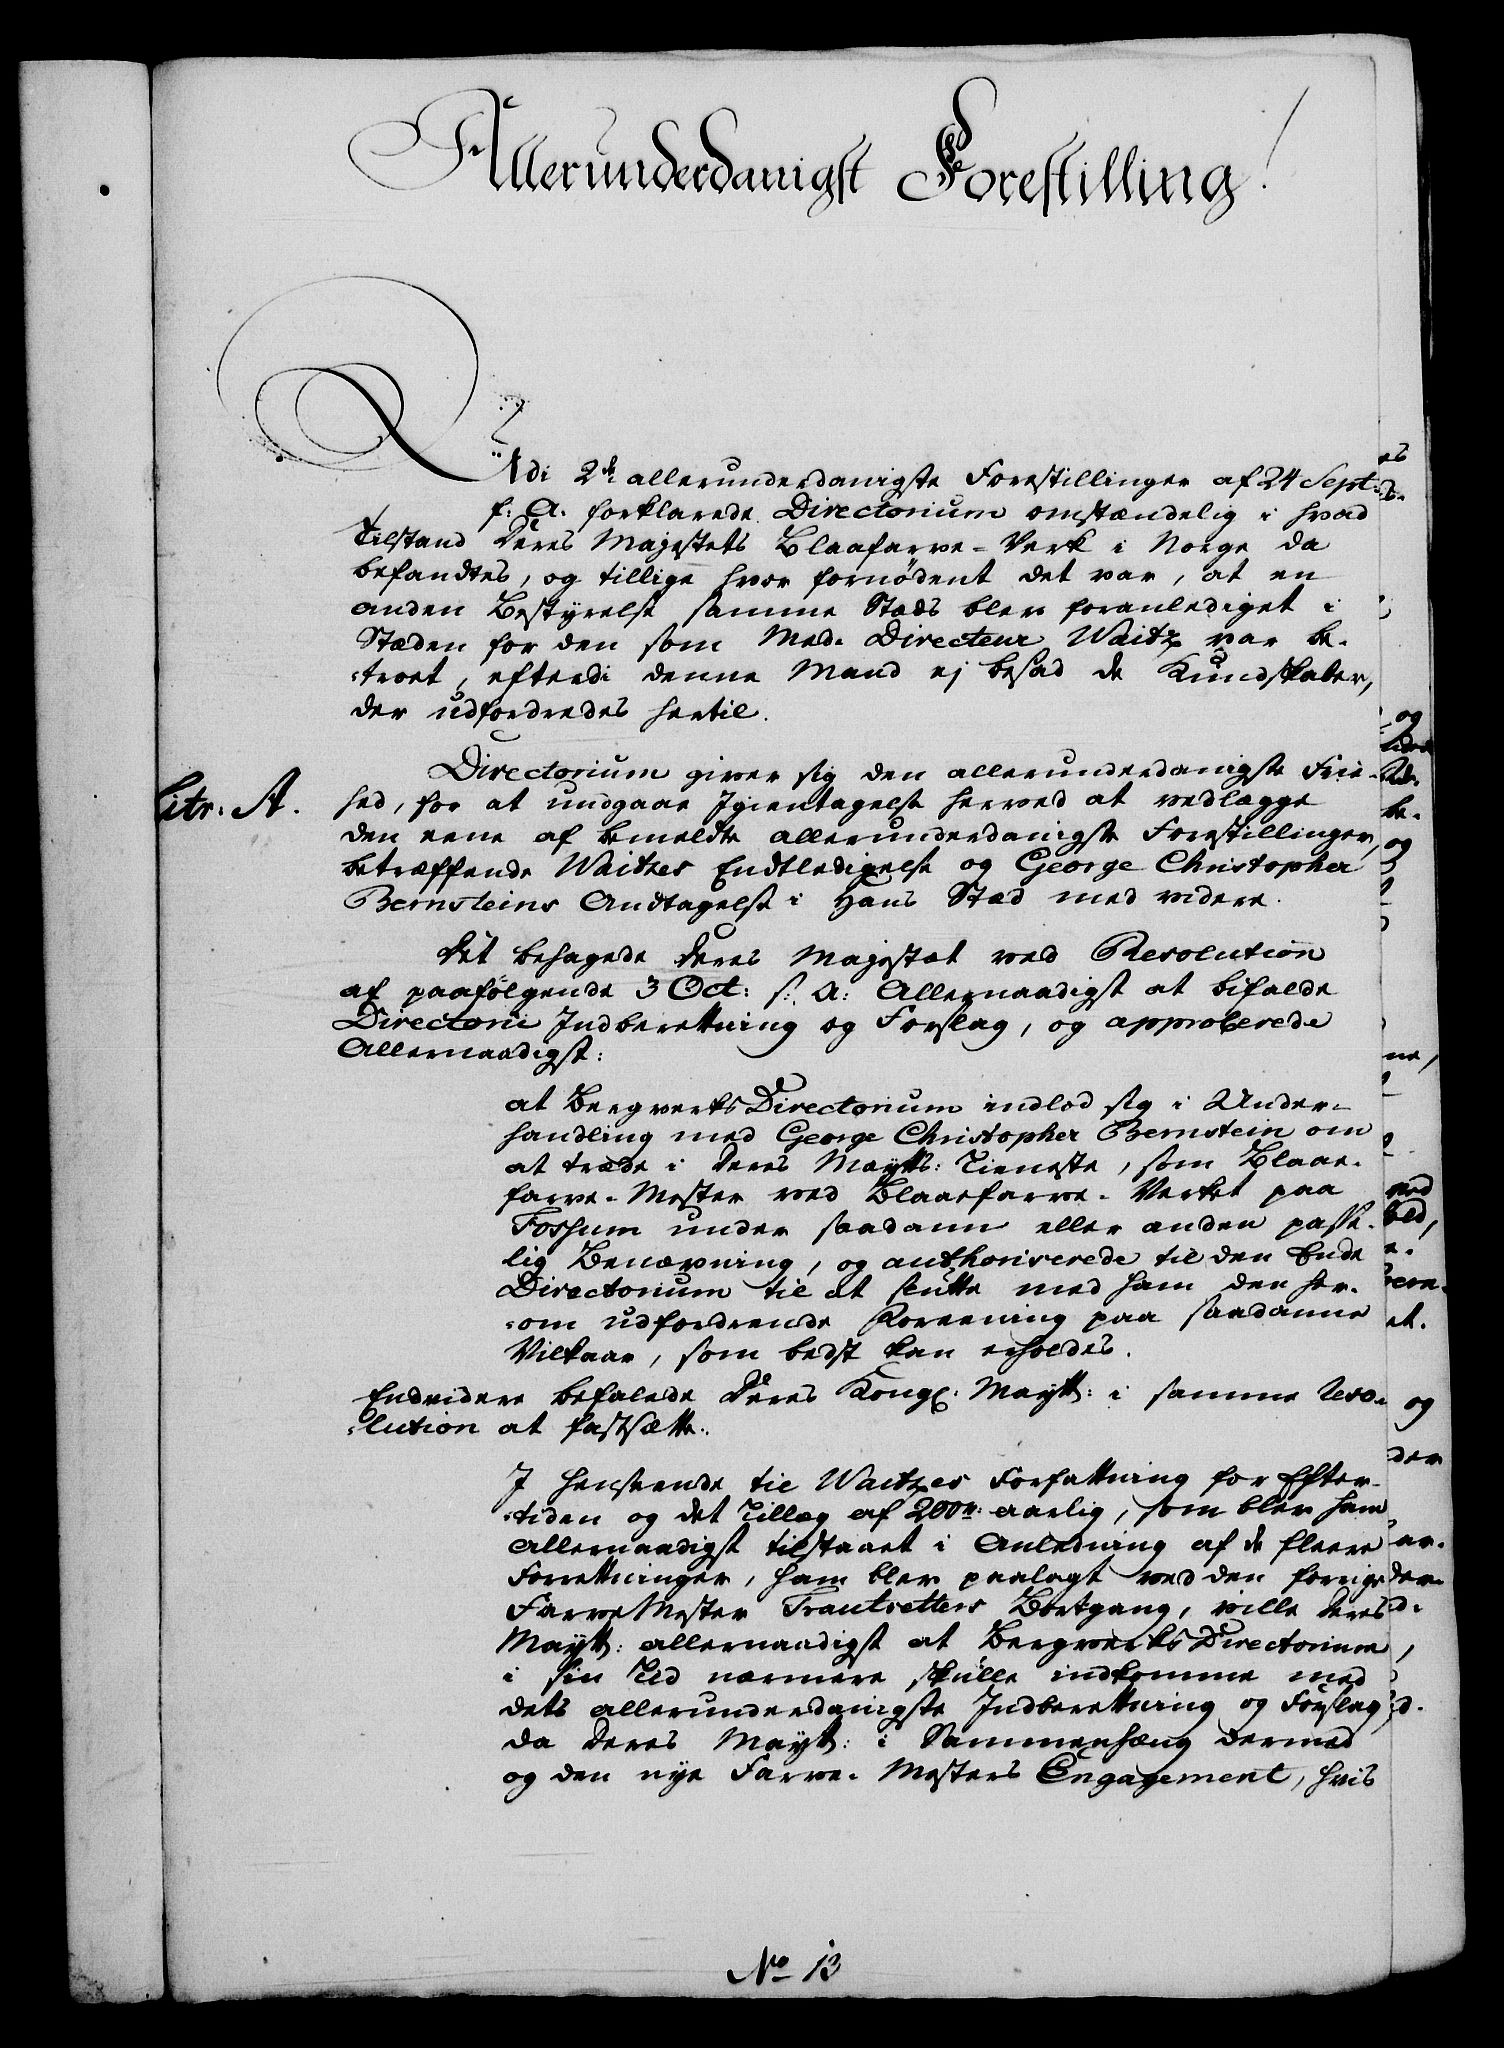 Allerunderdanigst Forestilling!
Udi 2de allerunderdanigste Forestillinger af 24 Sept:
f: A. forklarede Directorium omstændelig i hvad
Tilstand Deres Majestets Blaafarve-Verk i Norge da
befandtes, og tillige hvor fornödent det var, at en
anden Bestyrelse samme Stæds blev foranlediget i
Stæden for den som Med. Directeur Waitz var be-
-troet, efterdi denne Mand ej besad de Kundskaber,
der udfordredes hertil.
Litr: A.
Directorium giver sig den allerunderdanigste Frie-
hed, for at undgaae Igientagelse herved at vedlægge
den eene af bemeldte allerunderdanigste Forestillinger,
betræffende Waitzes Endtledigelse og George Christopher
Bernsteins Andtagelse i Hans Stæd med videre.
Det behagede Deres Majestæt ved Resolution
af paafølgende 3 Oct: s: A: Allernaadigst at bifalde
Directorii Indberettning og Forslag, og approberede
Allernaadigst:
at BergverksDirectorium indlod sig i Under-
handling med George Christopher Bernstein om
at træde i Deres Maytts: Tieneste, som Blaae-
farve-Mester ved Blaaefarve-Verket paa
Fossum under saadann eller anden passe-
lig Benævning, og authoriserede til den Ende
Directorium til at slutte med ham den her-
-om udfordrende Foreening paa saadanne
Vilkaar, som bedst kan erholdes.
Endvidere befalede Deres Kongl. Maytt: i samme Reso-
-lution at fastsætte:
I Henseende til Waitzes Forfattning for Efter-
-tiden og det Tillæg af 200 r: aarlig, som blev ham
Allernaadigst tilstaaet i Anledning af de fleere
Forrettninger, ham blev paalagt ved den forrige
FarveMester Trautvetters Bortgang, ville Deres
Maytt: allernaadigst at BergverksDirectorium
i sin Tid nærmere skulle indkomme med
dets allerunderdanigste Indberettning og Forslag,
da Deres Maytt: i Sammenhæng dermed
og den nye Farve-Mesters Engagement, hvis
No 13